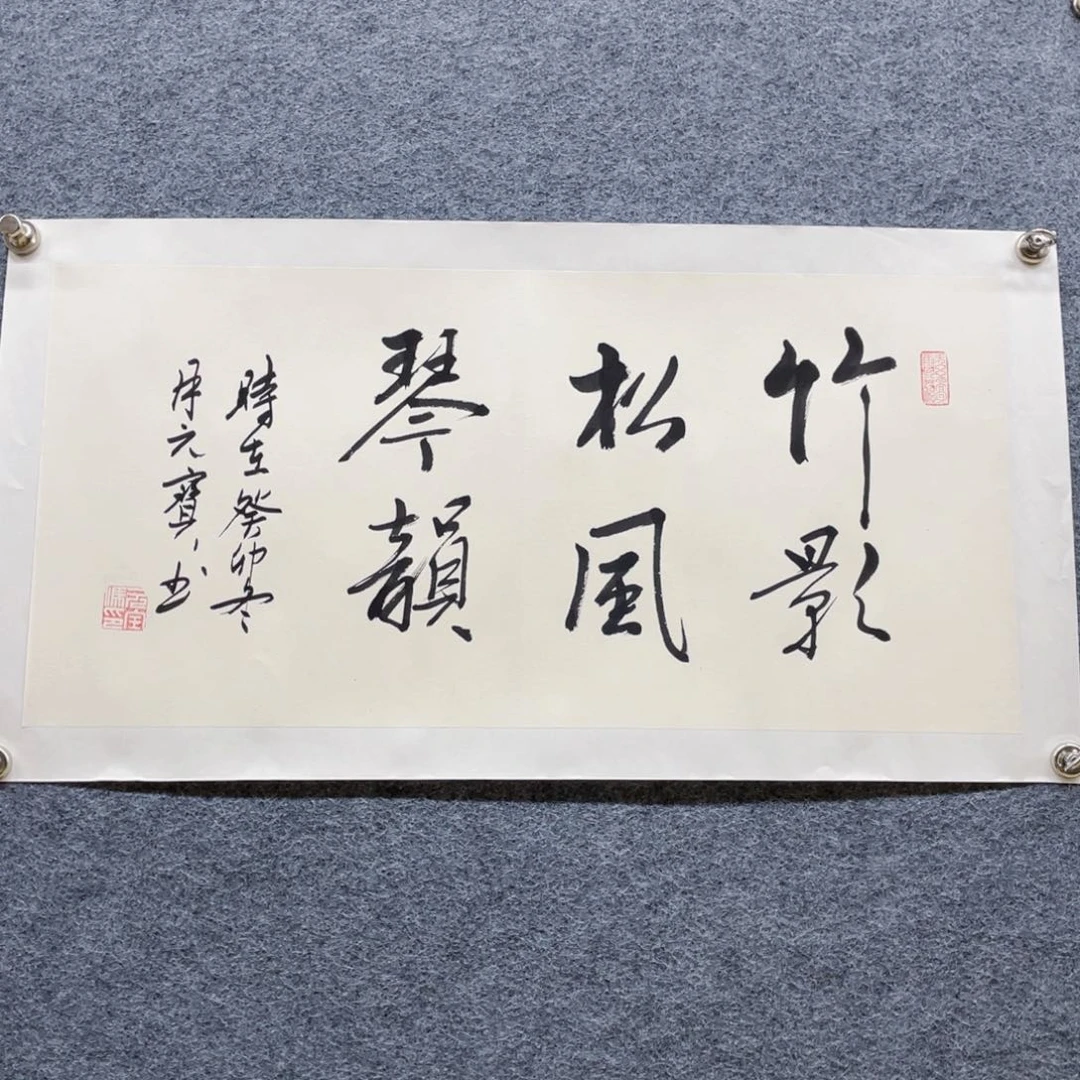 竹影
松風
琴韻
時在癸卯冬
月元寶书